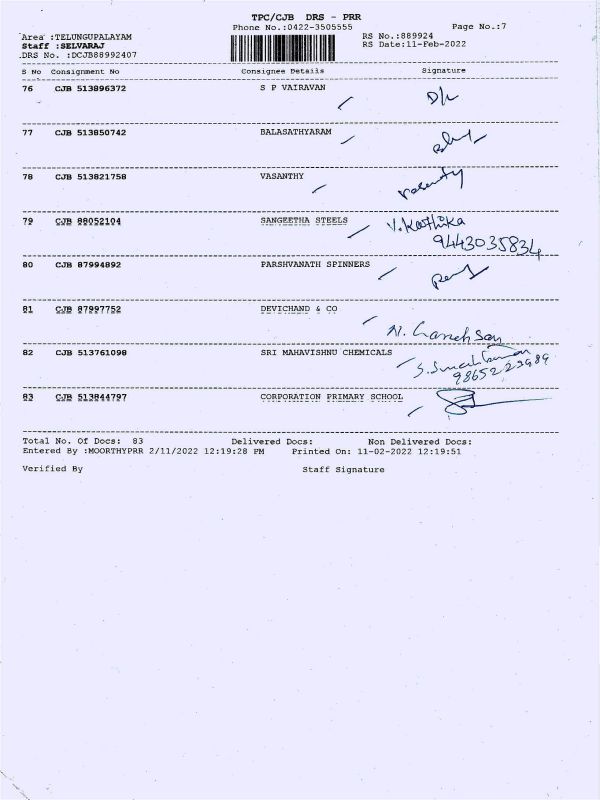 TPC/CJB DRS - PRR
Phone No.:0422-3505555 Page No.:7
Area :TELUNGUPALAYAM RS No.:889924
Staff :SELVARAJ RS Date:11-Feb-2022
DRS No. :DCJB88992407
S No Consignment No Consignee Details Signature
76 CJB 513896372 S P VAIRAVAN
77 CJB 513850742 BALASATHYARAM
78 CJB 513821758 VASANTHY
vasanthy
79 CJB 88052104 SANGEETHA STEELS V.Karthika
9443035834
80 CJB 87994892 PARSHVANATH SPINNERS
81 CJB 87997752 DEVICHAND & CO
82 CJB 513761098 SRI MAHAVISHNU CHEMICALS
9865223989
83 CJB 513844797 CORPORATION PRIMARY SCHOOL
Total No. Of Docs: 83 Delivered Docs: Non Delivered Docs:
Entered By :MOORTHYPRR 2/11/2022 12:19:28 PM Printed On: 11-02-2022 12:19:51
Verified By Staff Signature